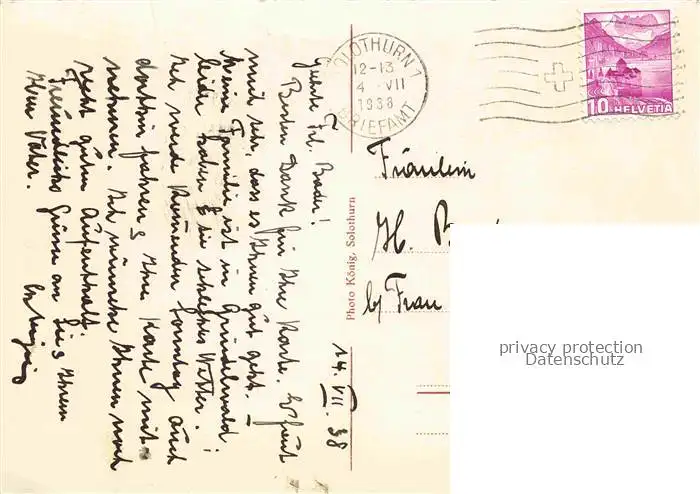 14. VII. 38
Geehrte Frl. Bader!
Besten Dank für Ihre Karte. Es freut
mich sehr, dass es Ihnen gut geht. –
Meine Familie ist in Grindelwald;
leider haben sie schlechtes Wetter.
Ich werde kommenden Sonntag auch
dorthin fahren & Ihre Karte mit-
nehmen. Ich wünsche Ihnen noch
recht guten Aufenthalt.
Freundliche Grüsse an Sie & Ihren
Hrn Vater.
Photo König, Solothurn
SOLOTHURN 1
12-13
4 VII
1938
BRIEFAMT
10 HELVETIA
Fräulein
H. B
b/ Frau
privacy protection
Datenschutz